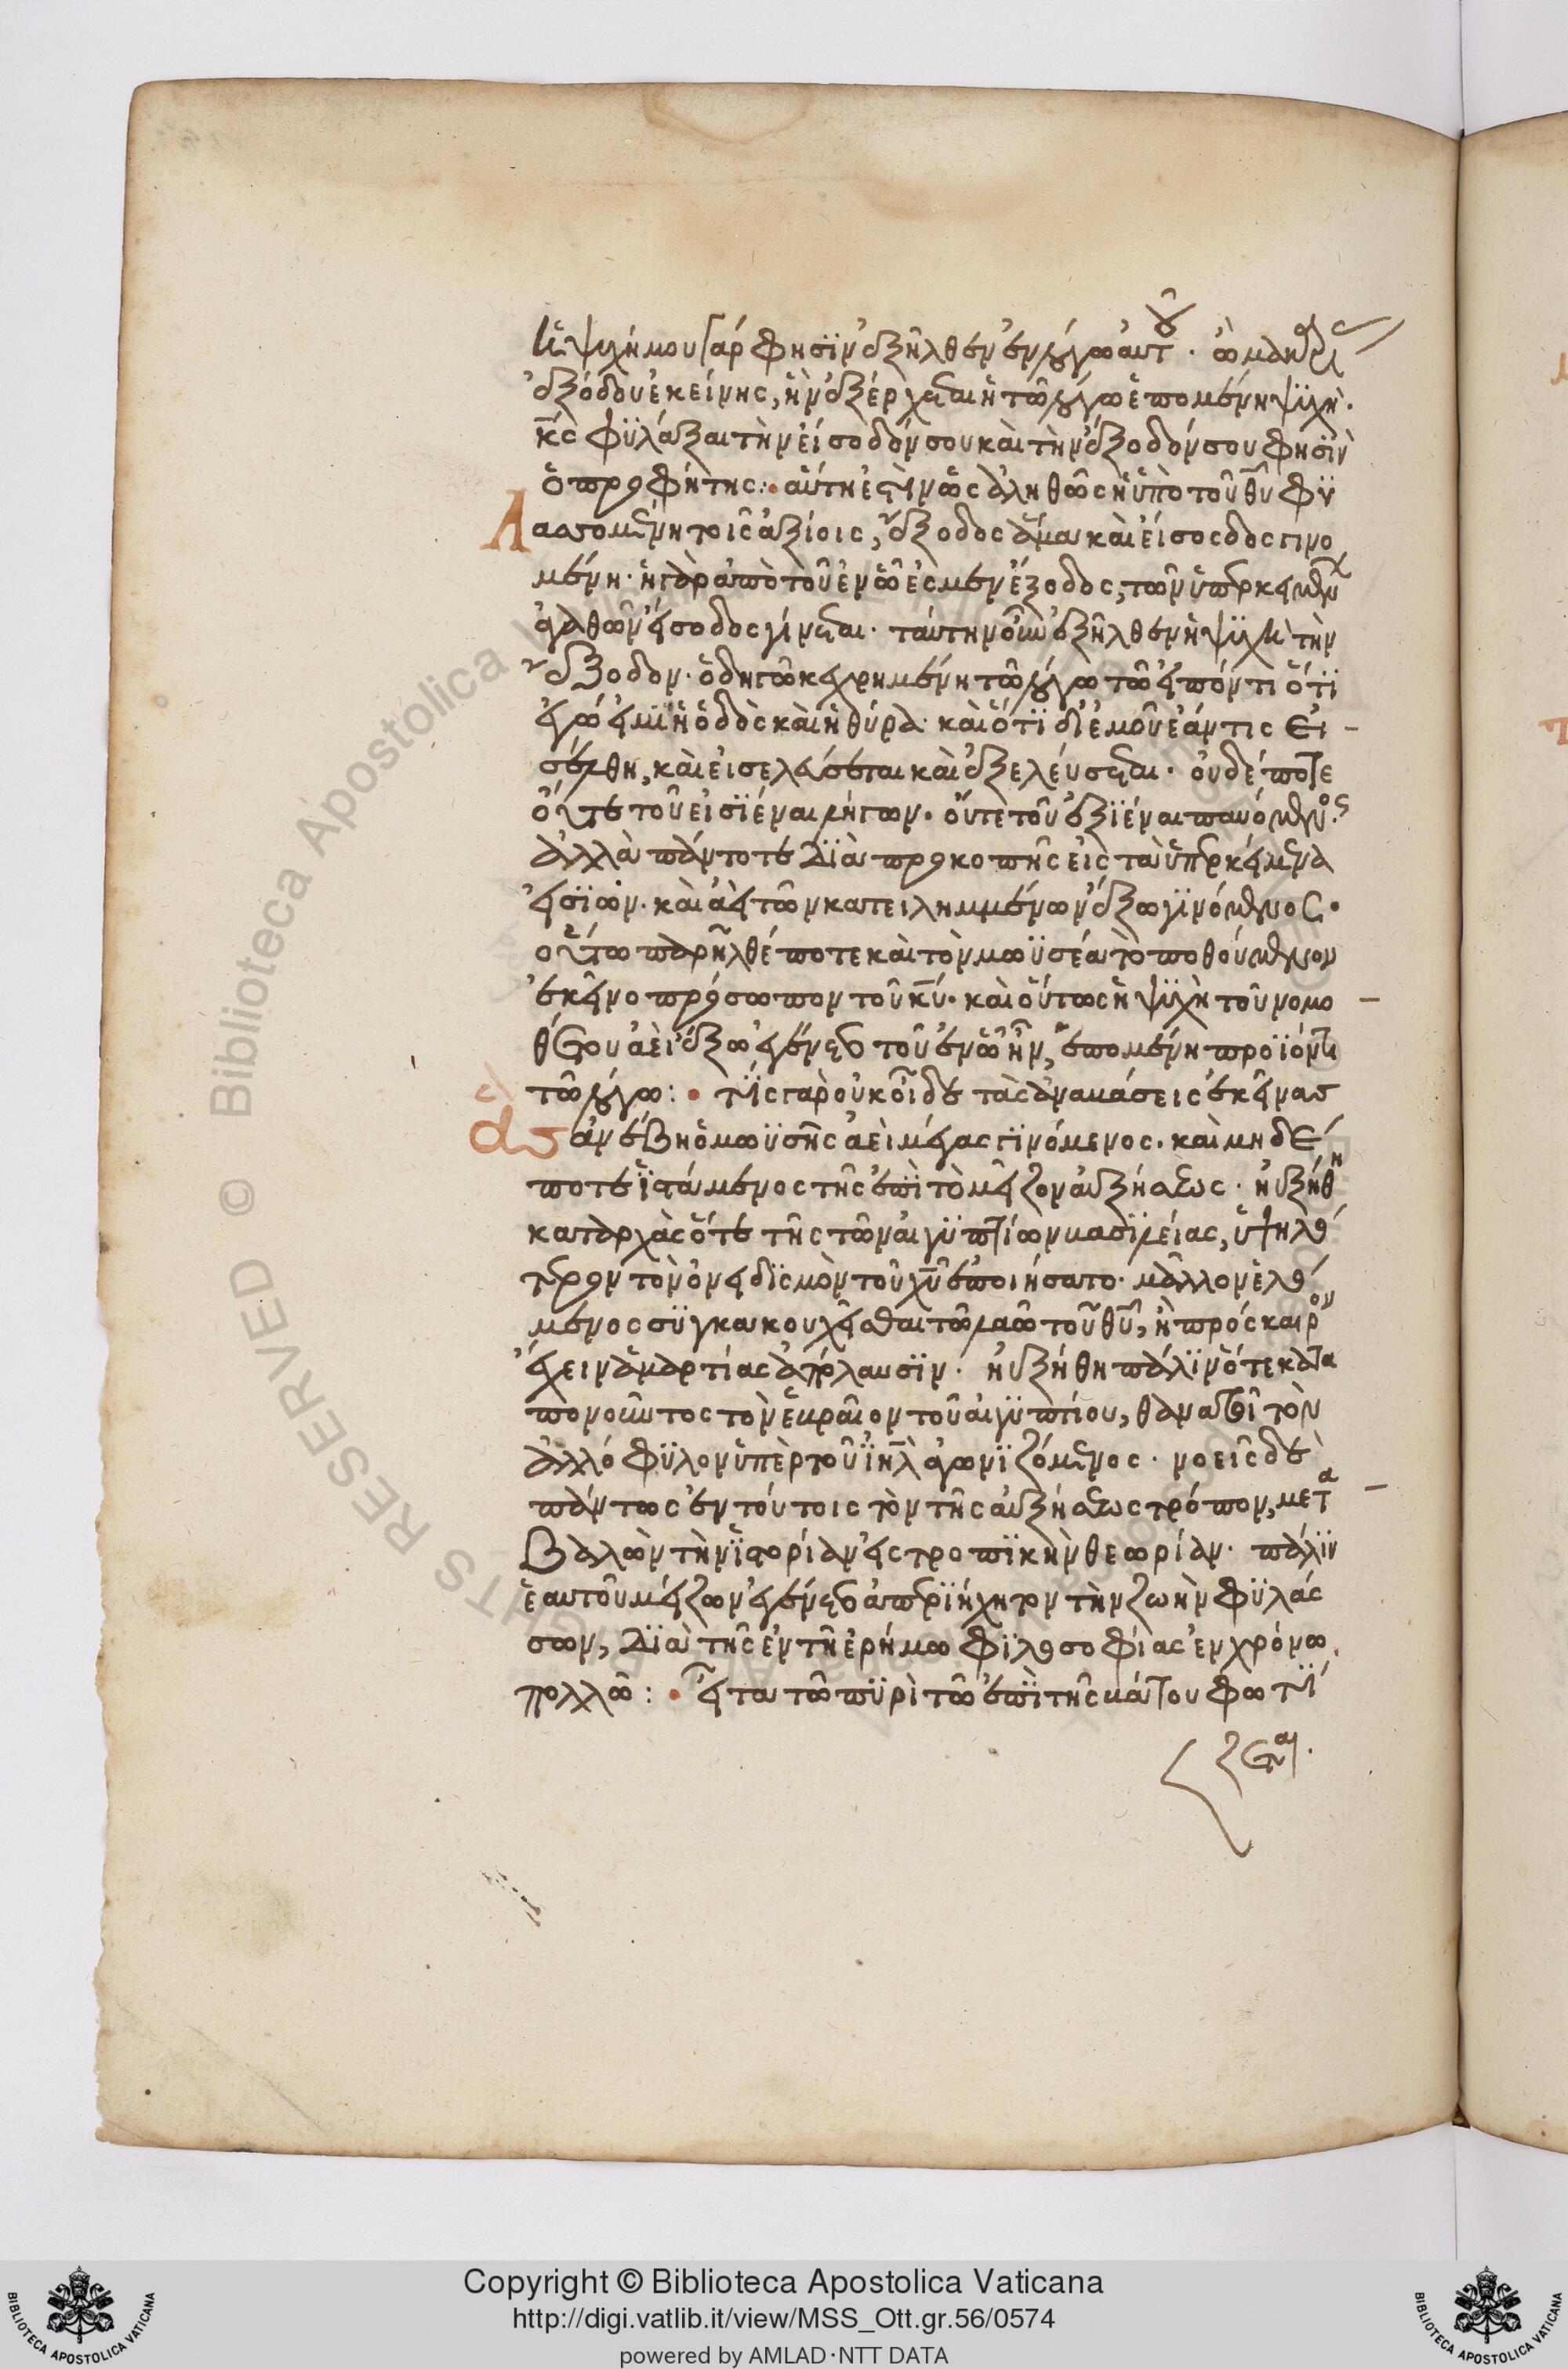 ἡ ψυχή μου γάρ φησϊν ἐξῆλθεν ἐν λόγω αὐτοῦ · ὢ μακαρίας
ἐξόδου ἐκείνης, ἣν ἐξέρχεται ἡ τῶ λόγω ἑπομένη ψϋχὴ.
κ̅ς̅ φϋλάξαι τὴν εἴσοδόν σου καὶ τὴν ἔξοδόν σου φησϊν
ὁ προφήτης:· αὕτη ἐστὶν ὡς ἀληθῶς ἡ ὑπὸ τοῦ θ̅υ̅ φϋ
Λασσομένη τοῖς ἀξίοις, ἔξοδος ἅμα καὶ εἴσοσδος γινο
μένη· ἡ γὰρ ἀπὸ τοῦ ἐν ὧ ἐσμεν ἔξοδος, τῶν ὑπερκειμένων
ἀγαθῶν εἴσοδος γίνεται· ταύτην οὖν ἐξῆλθεν ἡ ψϋχὴ τὴν
ἔξοδον· ὁδηγῶ κεχρημένη τῶ λόγω τῶ εἰπόντι ὅτϊ
ἐγώ εἰμϊ ἡ ὁδὸς καὶ ἡ θύρα· καὶ ὅτϊ δι' ἐμοῦ ἐάν τις εἰ
σέλθη, καὶ εἰσελεύσεται καὶ ἐξελεύσεται· οὐδέποτε
οὔτε τοῦ εἰσϊέναι λήγων· οὔτε τοῦ ἐξϊέναι παυόμενος·
ἀλλὰ πάντοτε δϊὰ προκοπῆς εἰς τὰ ὑπερκείμενα
εἰσϊών· καὶ ἀεὶ τῶν κατειλημμένων ἔξω γϊνόμενος·
οὕτω παρῆλθέ ποτε καὶ τὸν μωϋσέα τὸ ποθούμενον
ἐκεῖνο πρόσωπον τοῦ κ̅υ̅· καὶ οὕτως ἡ ψϋχὴ τοῦ νομο
θέτου ἀεὶ ἔξω ἐγένετο τοῦ ἐν ὧ ἦν, ἑπομένη προϊόντι
τῶ λόγω:· τίς γὰρ οὐκ οἶδε τὰς ἀναβάσεις ἐκείνας
ἃς ἀνέβη ὁ μωϋσῆς ἀεὶ μέγας γϊνόμενος· καὶ μηδέ
ποτε ἱστάμενος τῆς ἐπϊ τὸ μεῖζον αὐξήσεως· ηὐξήθη
καταρχὰς ὅτε τῆς τῶν αἰγϋπτίων βασϊλείας, ὑψηλό
τερον τὸν ὀνειδϊσμὸν τοῦ χ̅υ̅ ἐποιήσατο· μᾶλλον ἑλό
μενος σϋγκακουχεῖσθαι τῶ λαῶ τοῦ θ̅υ̅, ἢ πρόσκαιρον
ἔχειν ἁμαρτίας ἀπόλαυσϊν· ηὐξήθη πάλϊν ὅτε κατα
πονοῦντος τὸν ἑβραῖον τοῦ αἰγϋπτίου, θανατοῖ τὸν
ἀλλόφϋλον ὑπὲρ τοῦ ϊ̅η̅λ̅ ἀγωνϊζόμενος· νοεῖς δὲ
πάντως ἐν τούτοις τὸν τῆς αὐξήσεως τρόπον, μετα
βαλὼν τὴν ἱστορίαν εἰς τροπϊκὴν θεωρίαν· πάλϊν
ἑαυτοῦ μείζων ἐγένετο ἀπερϊήχητον τὴν ζωὴν φϋλάσ
σων, δϊὰ τῆς ἐν τῆ ἐρήμω φϊλοσοφίας ἐν χρόνω
πολλῶ:· εἶτα τῶ πϋρὶ τῶ ἐπϊ τῆς βάτου φωτί
ζεται·
Copyright © Biblioteca Apostolica Vaticana
http://digi.vatlib.it/view/MSS_Ott.gr.56/0574
powered by AMLAD·NTT DATA